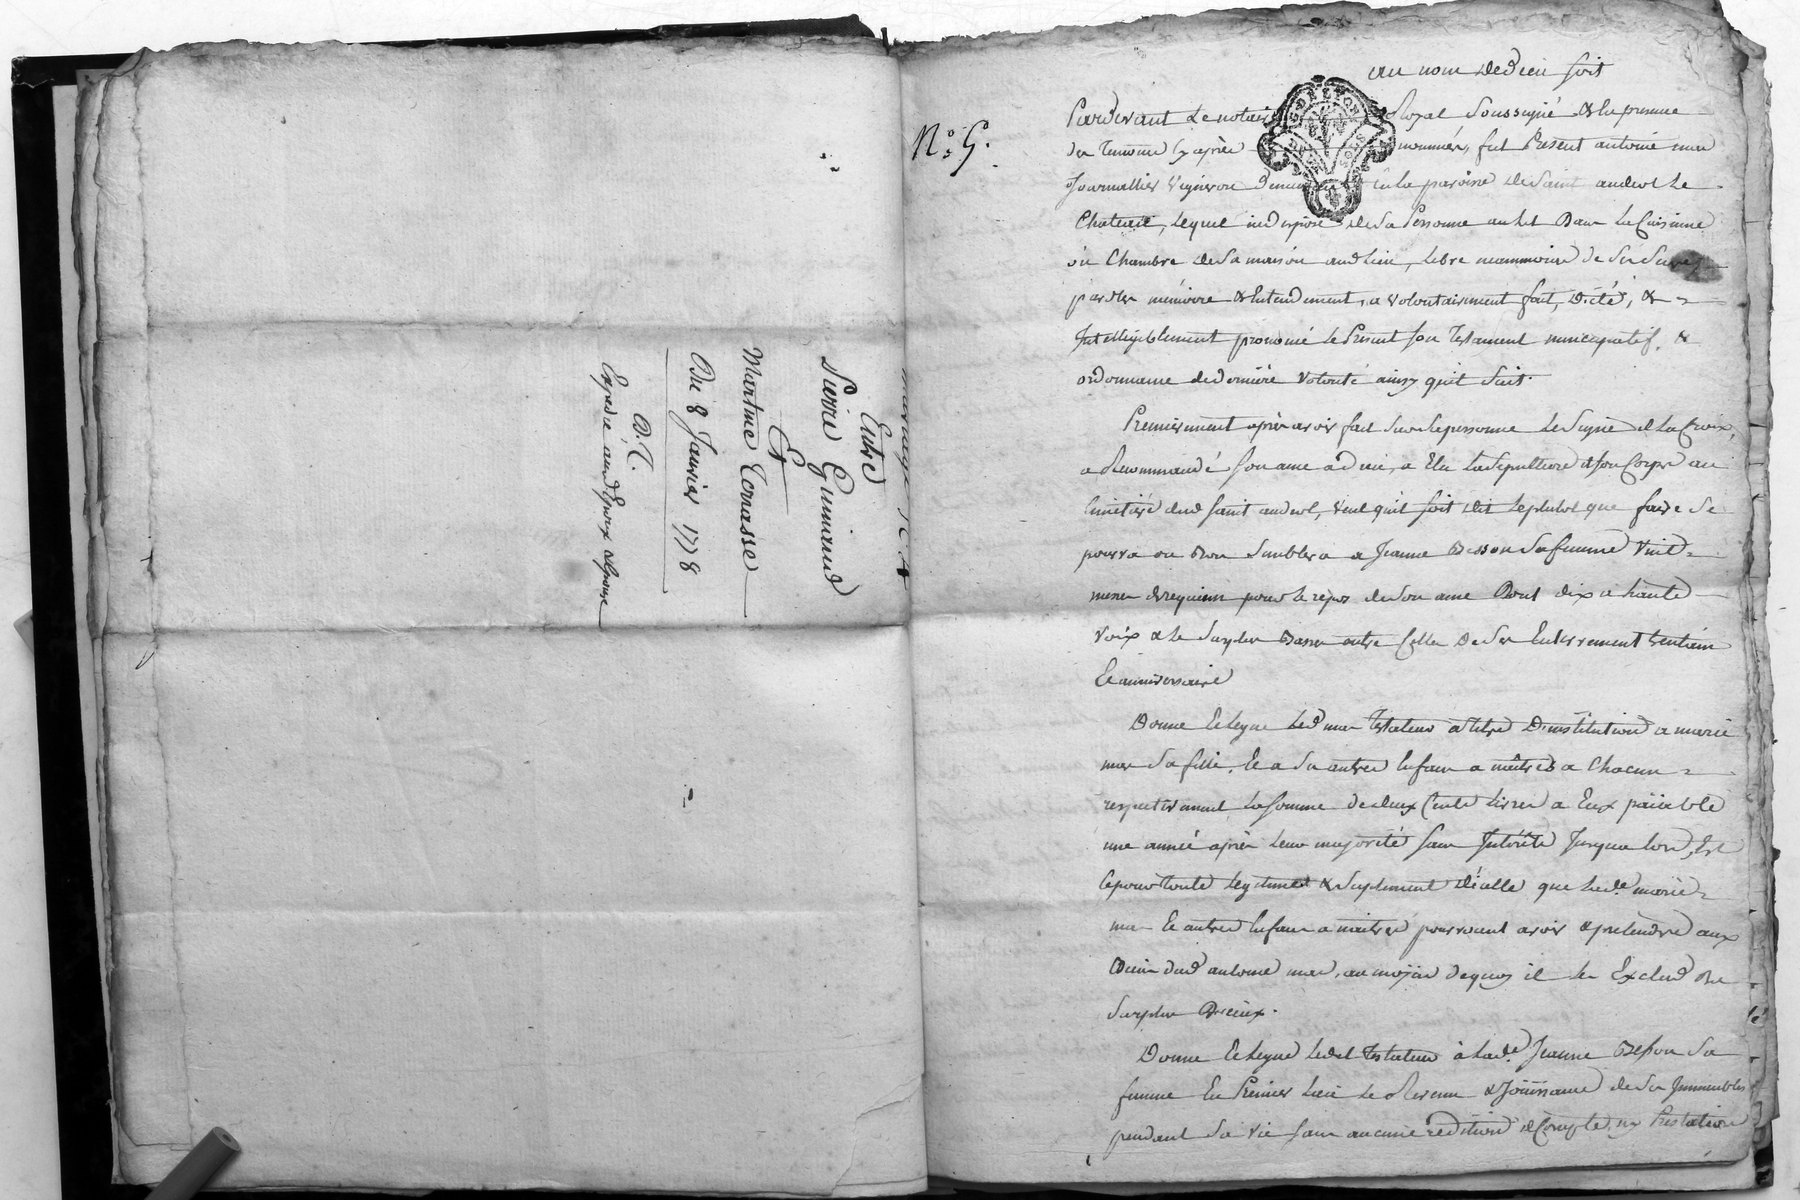 Mariage
Entre
Pierre Guiniand
Et
Martine Terrasse
Du 8 Janvier 1778
D. C.
Expedié aud Epoux &Epouse
N.° 5.
au nom dedieu soit
Pardevant Le notaire Royal Soussigné & en presence
des Temoins Cy après nommés, fut Present antoine mur
Journallier Vigneron demeurant en la paroisse de Saint andeol Le
Chateau, Lequel indisposé de sa Personne au lit Dans La Cuisinne
ou Chambre de Sa maison aud Lieu, Libre neammoins de Ses Sens,
parolle mémoire & Entendement, a Volontairement fait, Dicté, &
Intelligiblement prononcé le Present Son Testament nuncupatif, &
ordonnance dedernière Volonté ainsy quil Suit.
Premierement après avoir fait Sur Sapersonne Le Signe de La Croix,
a Recommandé Son ame a dieu, a Elu La Sepulture deson Corps au
Cimetière dud Saint andeol, Veut quil Soit dit Leplutot que faire Se
pourra ou Bon Semblera a Jeanne Besson Safemme Vint
messes derequiem pour le repos deson ame Dont dix a haute
Voix & le Surplus Basse outre Celles De Ses Enterrement trentain
Et anniversaire
Donne Et Legue Led mur Testateur atitre D'institution a marie
mur Sa fille, Et a Ses autres Enfans a naître a Chacun
respectivement La Somme de deux Cents Livres a Eux païable
une année après Leur majorité Sans Intérêts Jusqua Lors, Et
Cepour toute Legitime & Suplement d'icelle que Lad.e marie
mur Et autres Enfans a naitre pourroient avoir &pretendre aux
Biens dud antoine mur, au moyen dequoy il Les Exclud du
Surplus D'iceux.
Donne Et Legue Ledit Testateur à Lad.e Jeanne Besson Sa
femme En Premier Lieu Le Revenu & Jouissance de Ses Immeubles
pendant Sa Vie Sans aucune reddition de Compte, ny Prestation